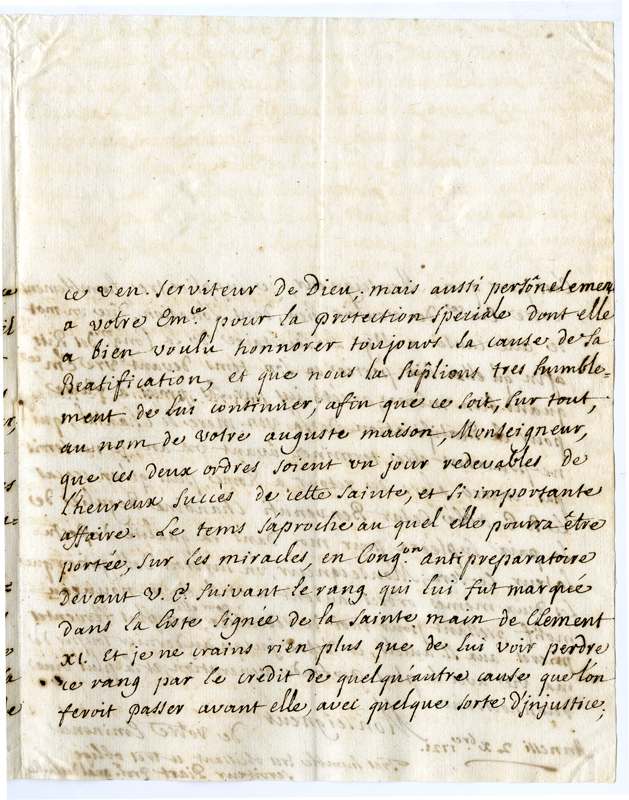 ce ven. serviteur de Dieu; mais aussi persônelemen
a votre Em.ce pour la protection speciale dont elle
a bien voulu honnorer toujours la cause de sa
Beatification, et que nous la supplions tres humble=
ment de lui continuer, afin que ce soit, sur tout,
au nom de votre auguste maison, Monseigneur,
que ces deux ordres soient un jour redevables de
l'heureux succès de cette sainte, et si importante
affaire. Le tems s'aproche au quel elle pourra être
portée, sur les miracles, en Cong.on antipreparatoire
devant V. E. suivant le rang qui lui fut marqué
dans la liste signée de la sainte main de Clement
XI. Et je ne crains rien plus que de lui voir perdre
ce rang par le crédit de quelqu'autre cause que l'on
feroit passer avant elle, avec quelque sorte d'injustice;